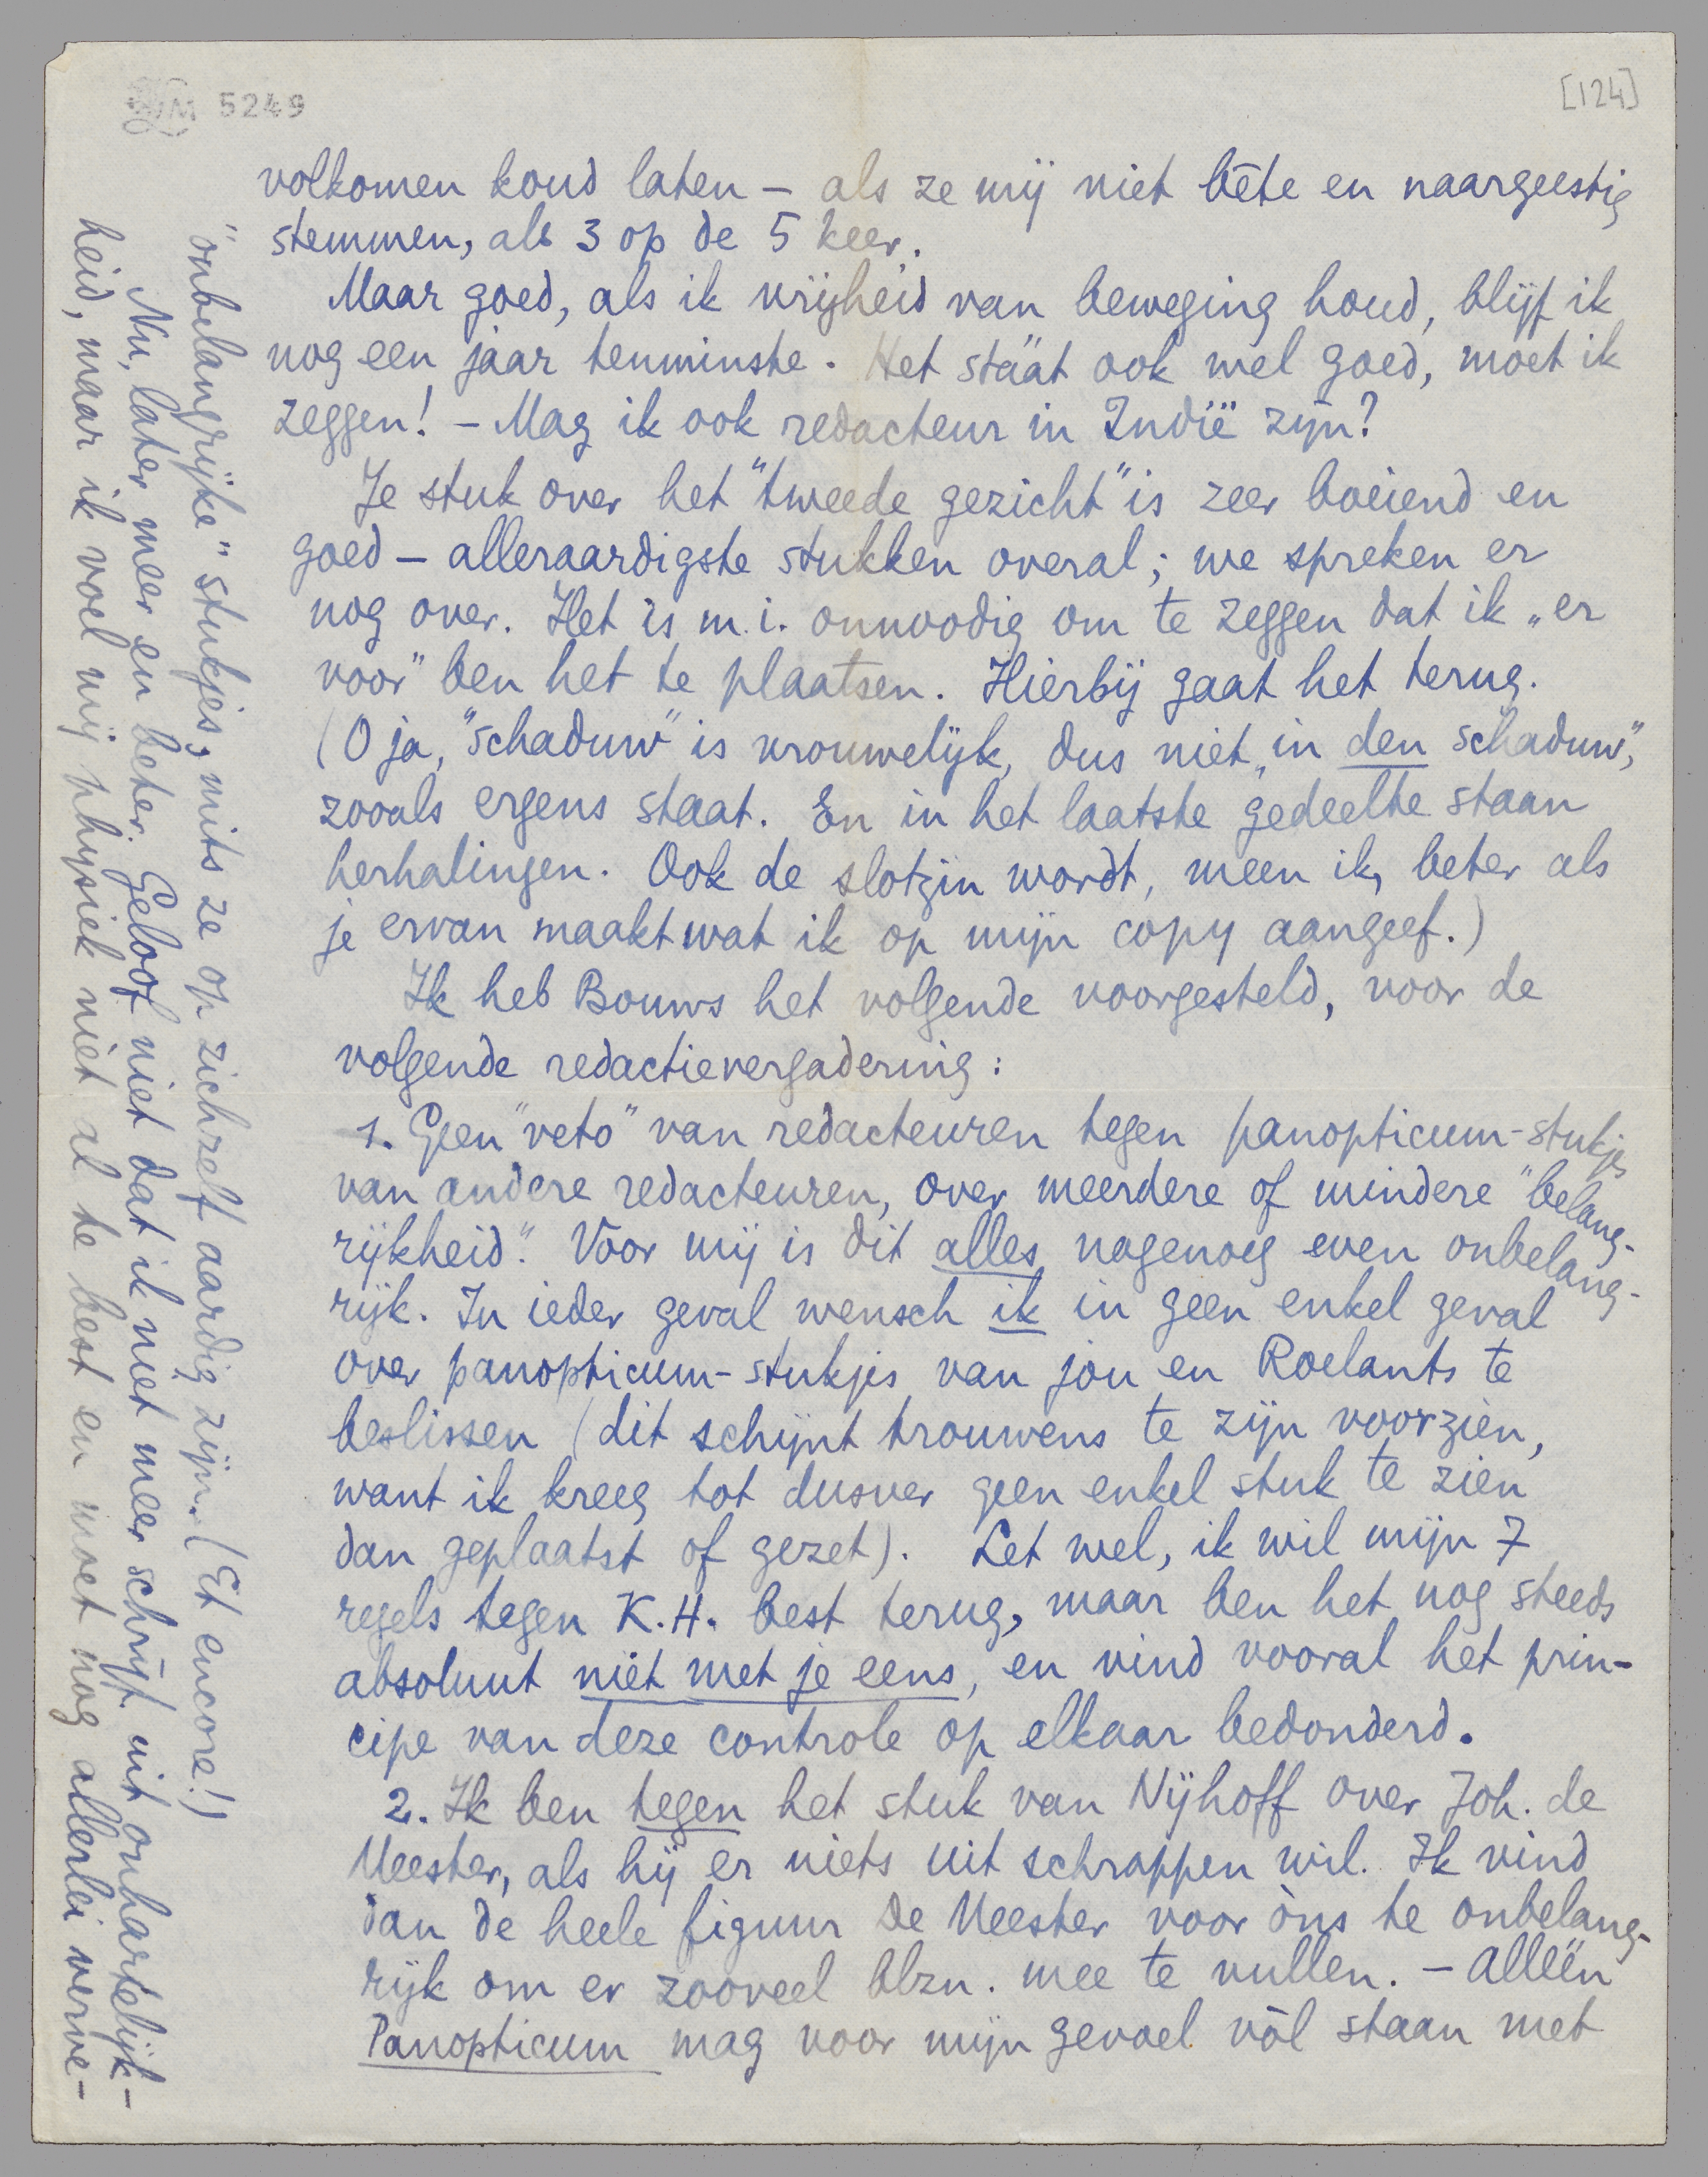 LM 5249
[124]
volkomen koud laten – als ze mij niet bête en naargeestig
stemmen, als 3 op de 5 keer.
Maar goed, als ik vrijheid van beweging houd, blijf ik
nog een jaar tenminste. Het stáát ook wel goed, moet ik
zeggen! – Mag ik ook redacteur in Indië zijn?
Je stuk over het "tweede gezicht" is zeer boeiend en
goed – alleraardigste stukken overal; we spreken er
nog over. Het is m.i. onnoodig om te zeggen dat ik „er
voor" ben het te plaatsen. Hierbij gaat het terug.
(O ja, "schaduw" is vrouwelijk, dus niet „in den schaduw",
zooals ergens staat. En in het laatste gedeelte staan
herhalingen. Ook de slotzin wordt, meen ik, beter als
je ervan maakt wat ik op mijn copy aangeef.)
Ik heb Bouws het volgende voorgesteld, voor de
volgende redactievergadering:
1. Geen "veto" van redacteuren tegen panopticum-stukjes
van andere redacteuren, over meerdere of mindere "belang-
rijkheid". Voor mij is dit alles nagenoeg even onbelang-
rijk. In ieder geval wensch ik in geen enkel geval
over panopticum-stukjes van jou en Roelants te
beslissen (dit schijnt trouwens te zijn voorzien,
want ik kreeg tot dusver geen enkel stuk te zien
dan geplaatst of gezet). Let wel, ik wil mijn 7
regels tegen K.H. best terug, maar ben het nog steeds
absoluut niet met je eens, en vind vooral het prin-
cipe van deze controle op elkaar bedonderd.
2. Ik ben tegen het stuk van Nijhoff over Joh. de
Meester, als hij er niets uit schrappen wil. Ik vind
dan de heele figuur De Meester voor òns te onbelang-
rijk om er zooveel blzn. mee te vullen. – Alléén
Panopticum mag voor mijn gevoel vòl staan met
"onbelangrijke" stukjes, mits ze op zichzelf aardig zijn. (Et encore!)
Nu, later meer en beter. Geloof niet dat ik niet meer schrijf uit onhartelijk-
heid, maar ik voel mij physiek niet al te best en moet nog allerlei verve-